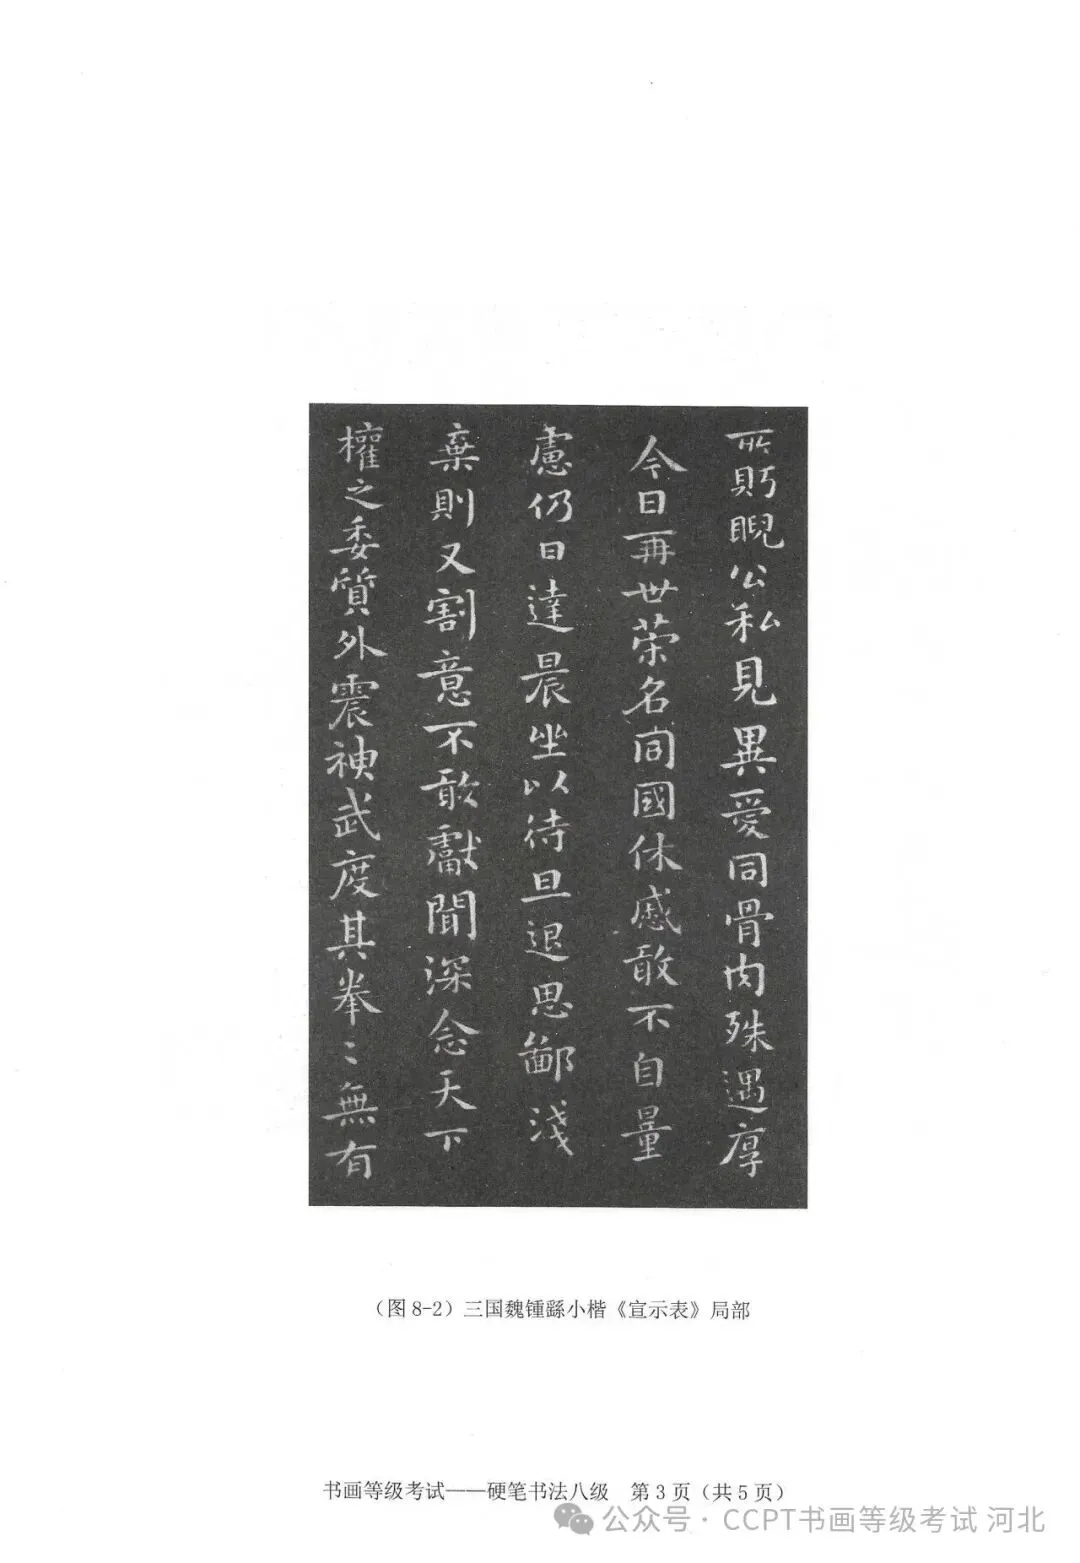 所貺睨公私見異愛同骨肉殊遇厚
今日再世荣名同國休慼敢不自量
慮仍日達晨坐以待旦退思鄙淺
棄則又割意不敢獻聞深念天下
權之委質外震神武度其拳〻無有
（图 8-2）三国魏锺繇小楷《宣示表》局部
书画等级考试——硬笔书法八级 第 3 页（共 5 页）
公众号·CCPT书画等级考试 河北